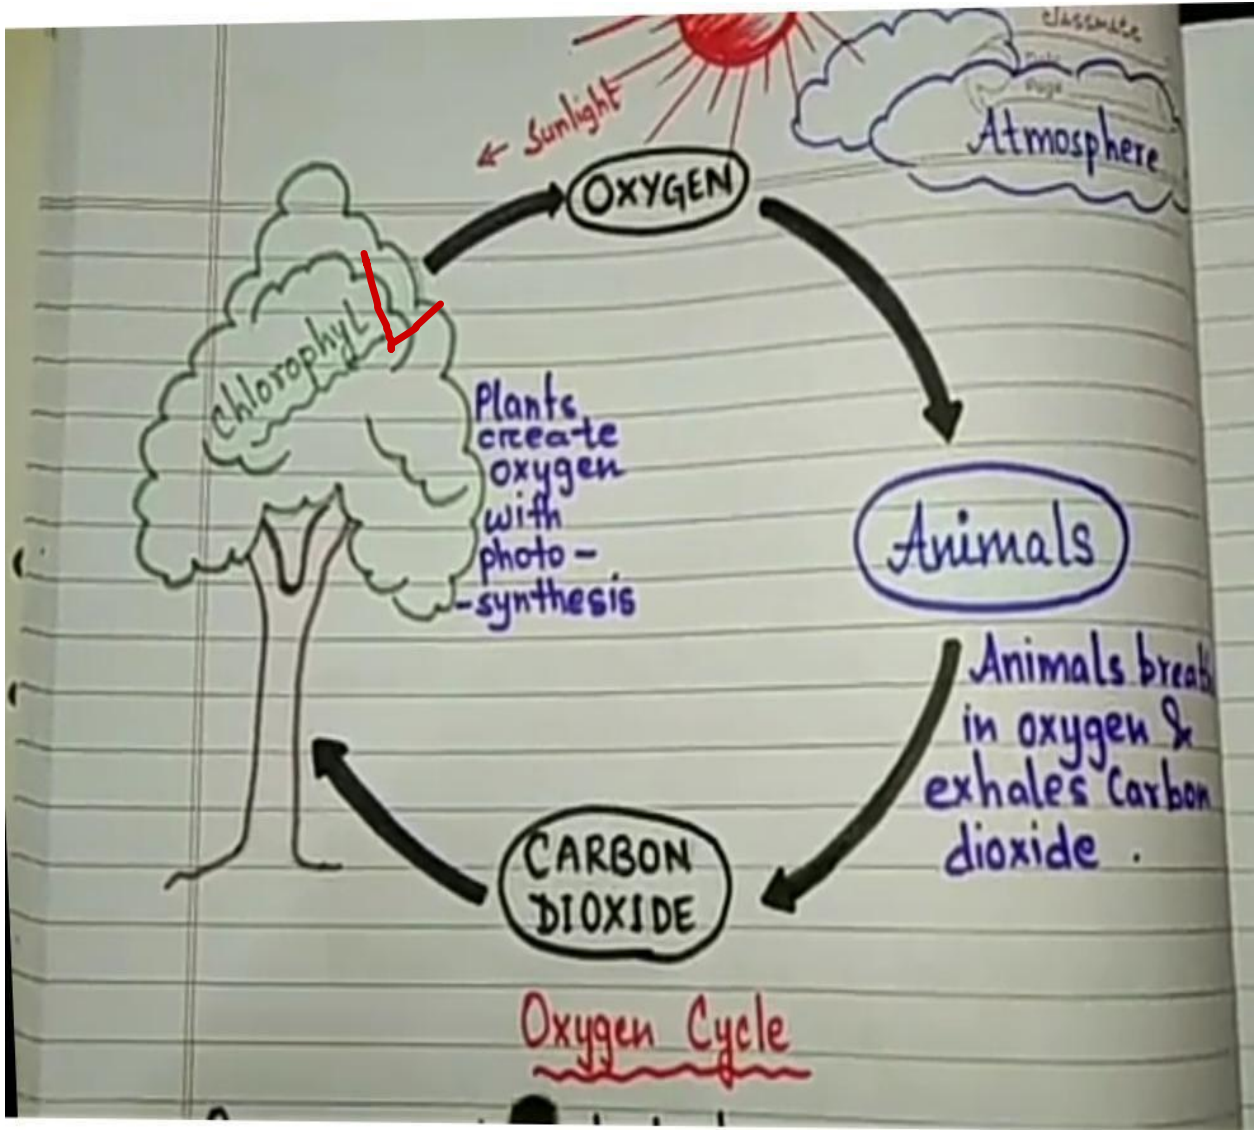 classmate
Date
Page
← Sunlight
Atmosphere
OXYGEN
chlorophylL
Plants
create
oxygen
with
photo-
-synthesis
Animals
Animals breath
in oxygen &
exhales Carbon
dioxide .
CARBON
DIOXIDE
Oxygen Cycle